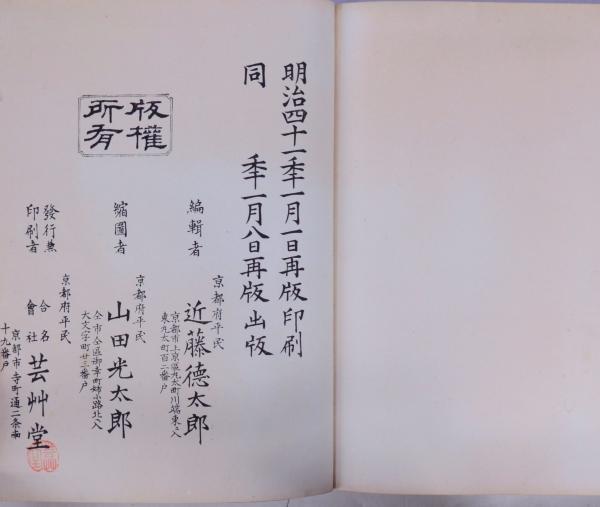 明治四十一秊一月一日再版印刷
同 秊一月八日再版出版
版權
所有
編輯者
京都府平民
近藤德太郎
京都市上京區丸太町川端東ヘ入
東丸太町百二番戶
縮圖者
京都府平民
山田光太郎
仝市仝區御幸町姉小路北ヘ入
大文字町廿三番戶
發行兼
印刷者
京都府平民
合名
會社
芸艸堂
京都市寺町通二条南
十九番戶